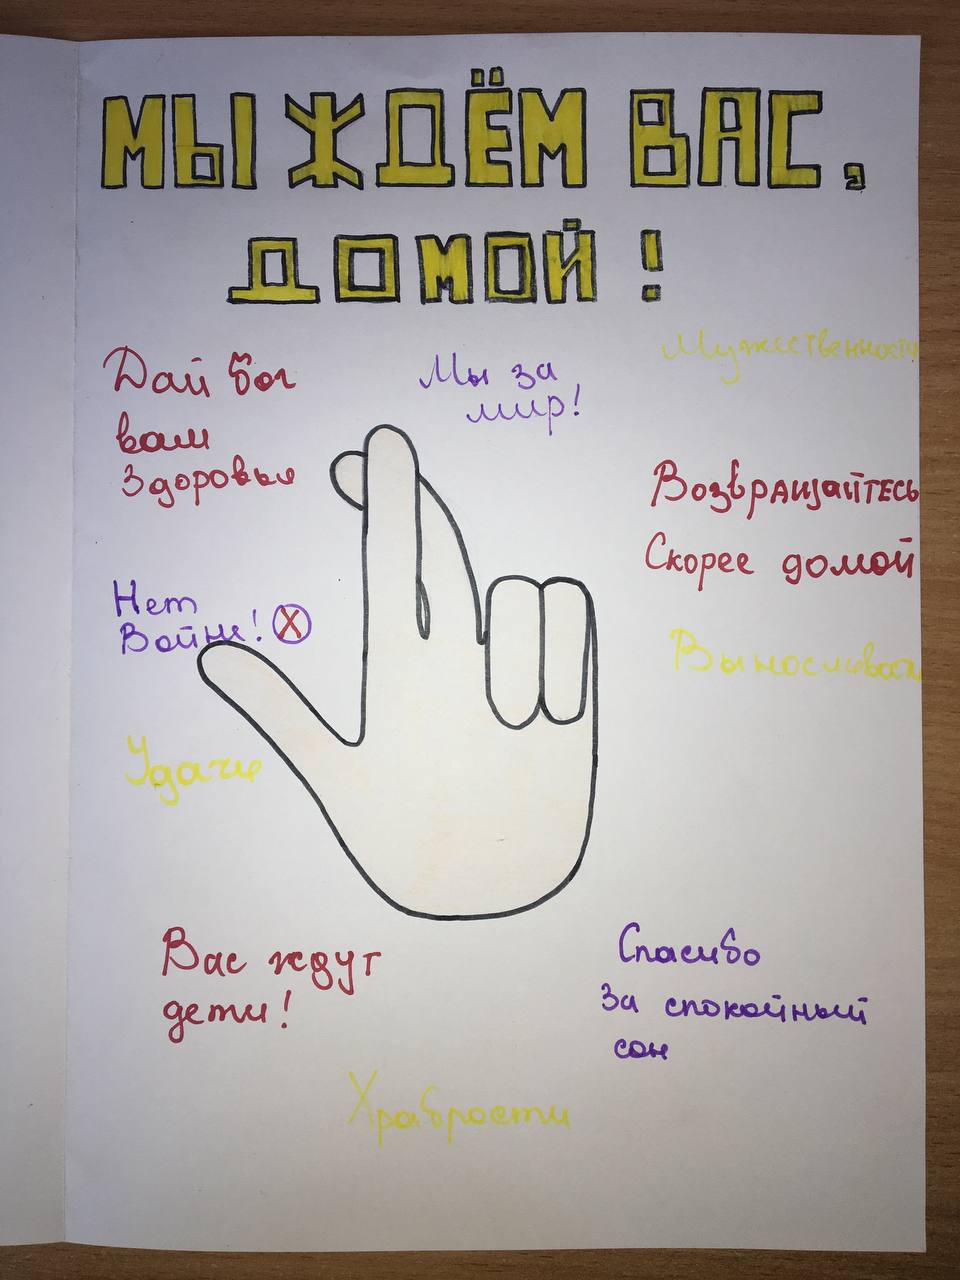 МЫ ЖДЁМ ВАС,
ДОМОЙ!
Дай бог
вам
Здоровья
Мы за
мир!
Мужественности
Возвращайтесь
Скорее домой
Нет
Войне!
Удачи
Вас ждут
дети!
Спасибо
За спокойный
сон
Храбрости